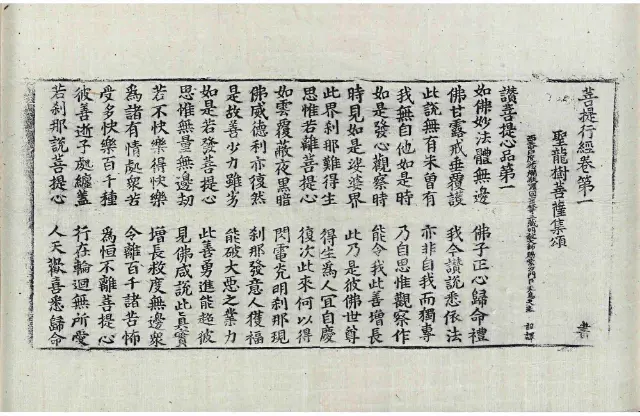 菩提行經卷第一 書
聖龍樹菩薩集頌
詔譯
讚菩提心品第一
如佛妙法體無邊 佛子正心歸命禮
佛甘露戒垂覆護 我今讚說悉依法
此說無有未曾有 亦非自我而獨專
我無自他如是時 乃自思惟觀察作
如是發心觀察時 能令我此善增長
時見如是娑婆界 此乃是彼佛世尊
此界剎那難得生 得生為人宜自慶
思惟若離菩提心 復次此來何以得
如雲覆蔽夜黑暗 閃電光明剎那現
佛威德利亦復然 剎那發意人獲福
是故善少力雖劣 能破大惡之業力
如是若發菩提心 此善勇進能超彼
思惟無量無邊劫 見佛咸說此真實
若不快樂得快樂 增長救度無邊衆
為諸有情處衆苦 令離百千諸苦怖
受多快樂百千種 為恒不離菩提心
彼善逝子處纏蓋 行在輪迴無所愛
若剎那說菩提心 人天歡喜悉歸命